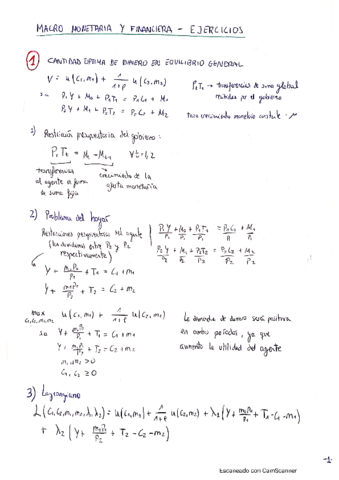 MACRO MONETARIA Y FINANCIERA - EJERCICIOS
① CANTIDAD ÓPTIMA DE DINERO EN EQUILIBRIO GENERAL
V = u(c₁, m₁) + 1/(1+ρ) u(c₂, m₂)
s.a P₁Y + M₀ + P₁T₁ = P₁C₁ + M₁
P₂Y + M₁ + P₂T₂ = P₂C₂ + M₂
PₜTₜ → transferencias de suma global
por el gobierno
Tasa crecimiento monetario constante: μ
1) Restricción presupuestaria del gobierno:
PₜTₜ = Mₜ - Mₜ₋₁ ∀t=1,2
transferencias
al agente a
suma fija
crecimiento de la
oferta monetaria
2) Problema del hogar
Restricciones presupuestarias del agente
(las dividimos entre P₁ y P₂
respectivamente)
P₁Y/P₁ + M₀/P₁ + P₁T₁/P₁ = P₁C₁/P₁ + M₁/P₁
P₂Y/P₂ + M₁/P₂ + P₂T₂/P₂ = P₂C₂/P₂ + M₂/P₂
+ T₁ = C₁ + m₁
+ T₂ = C₂ + m₂
max u(c₁, m₁) + 1/(1+ρ) u(c₂, m₂)
C₁, C₂, m₁, m₂
s.a
+ T₁ = C₁ + m₁
+ T₂ = C₂ + m₂
m₁, m₂ > 0
C₁, C₂ ≥ 0
La demanda de dinero será positiva
en ambos periodos, ya que
aumenta la utilidad del agente
3) Lagrangiano
L(C₁, C₂, m₁, m₂, λ₁, λ₂) = u(c₁, m₁) + 1/(1+ρ) u(c₂, m₂) + λ₁
+ λ₂
+ T₂ - C₂ - m₂)
-1-
Escaneado con CamScanner